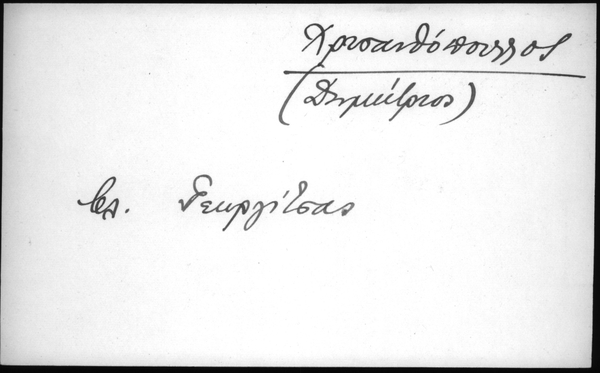 Χρυσανθόπουλλος
(Δημήτριος)
βλ. Γεωργίτσας